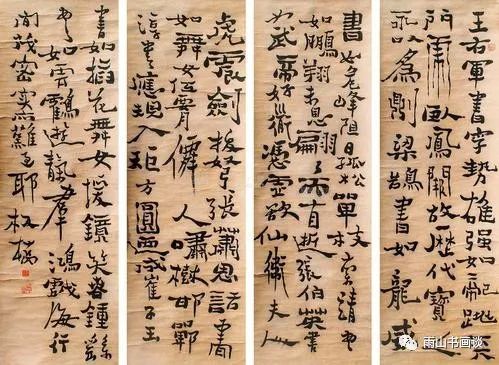 王右軍書字勢雄强如龍跳天
門虎臥鳳闕故歷代寶之
永以為訓梁鵠書如龍威
書如危峰阻日孤松單枝索靖書
如鵬翔未息翩翩而自逝張伯英書
如武帝好道憑虛欲仙衛夫人
虎震劍拔弩張蕭思話書
如舞女低腰僊人嘯樹邯鄲
淳書應規入矩方圓迺成崔子玉
書如插花舞女援鏡笑春鍾繇
書如雲鶴遊天群鴻戲海行
間茂密實難過耶板橋
雨山书画谈